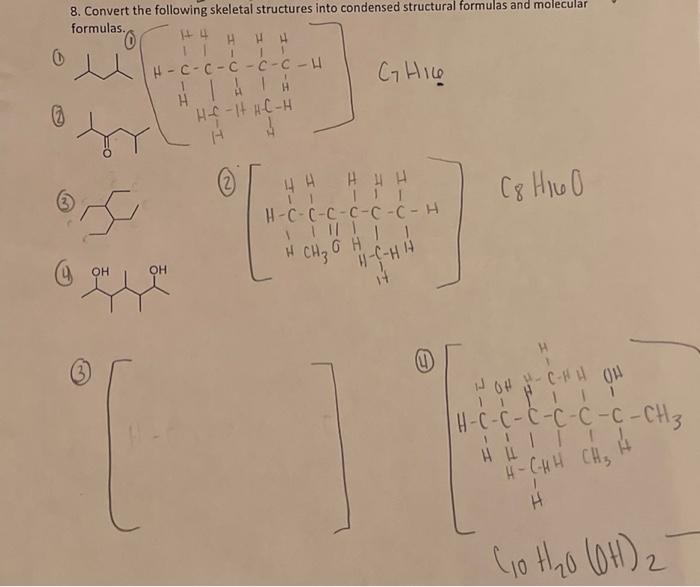 8. Convert the following skeletal structures into condensed structural formulas and molecular
formulas.
① ①
H H H H H
H-C-C-C-C-C-H
H H H
H-C-H H-C-H
H H
C7H16
②
O
②
H H H H H
H-C-C-C-C-C-C-H
H CH3 O H H
H-C-H
H
C8H16O
③
④
OH OH
③
④
H
H OH H-C-H H OH
H-C-C-C-C-C-C-CH3
H H H CH3 H
H-C-H
H
C10H20(OH)2